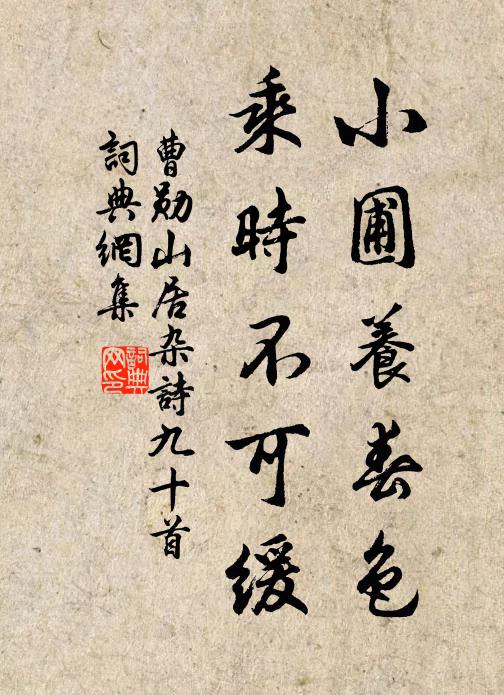 小圃養春色
乘時不可緩
曹勛山居杂詩九十首
詞典網集
詞典網印